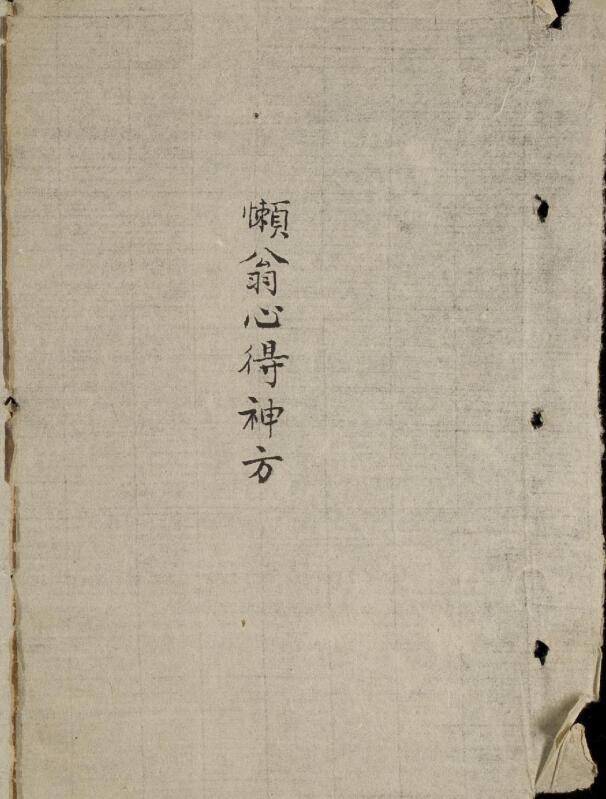 懶翁心得神方